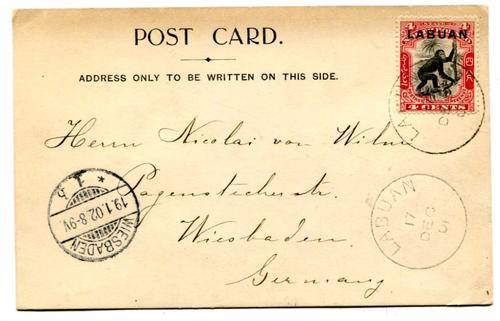 POST CARD.
ADDRESS ONLY TO BE WRITTEN ON THIS SIDE.
LABUAN
4 CENTS
Herrn Nicolai von Wilm
Pagenstecherstr.
Wiesbaden.
Germany
WIESBADEN
19.1.02.8-9V.
* 1 h
LABUAN
17
DEC
01
LABUAN
D